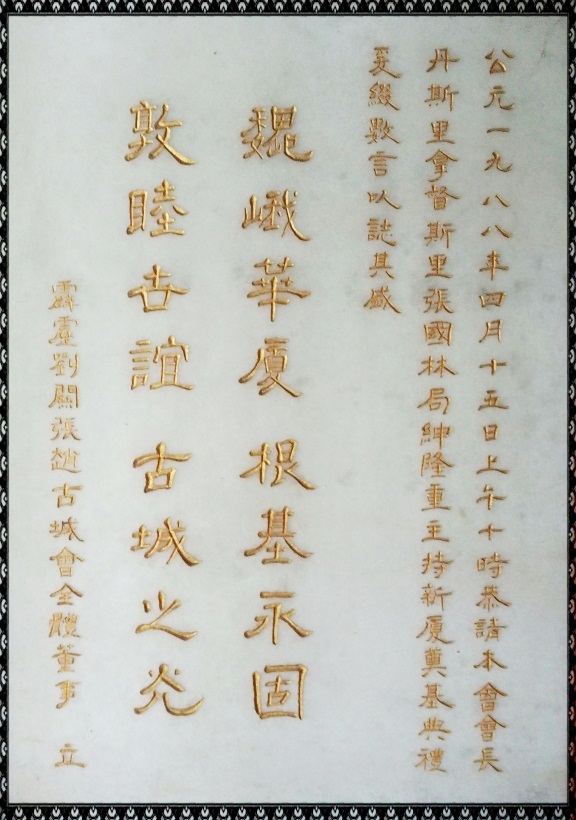 公元一九八八年四月十五日上午十時恭請本會會長
丹斯里拿督斯里張國林局紳隆重主持新厦奠基典禮
爰綴數言以誌其盛
巍峨華厦 根基永固
敦睦吉誼 古城之光
霹靂劉關張趙古城會全體董事 立